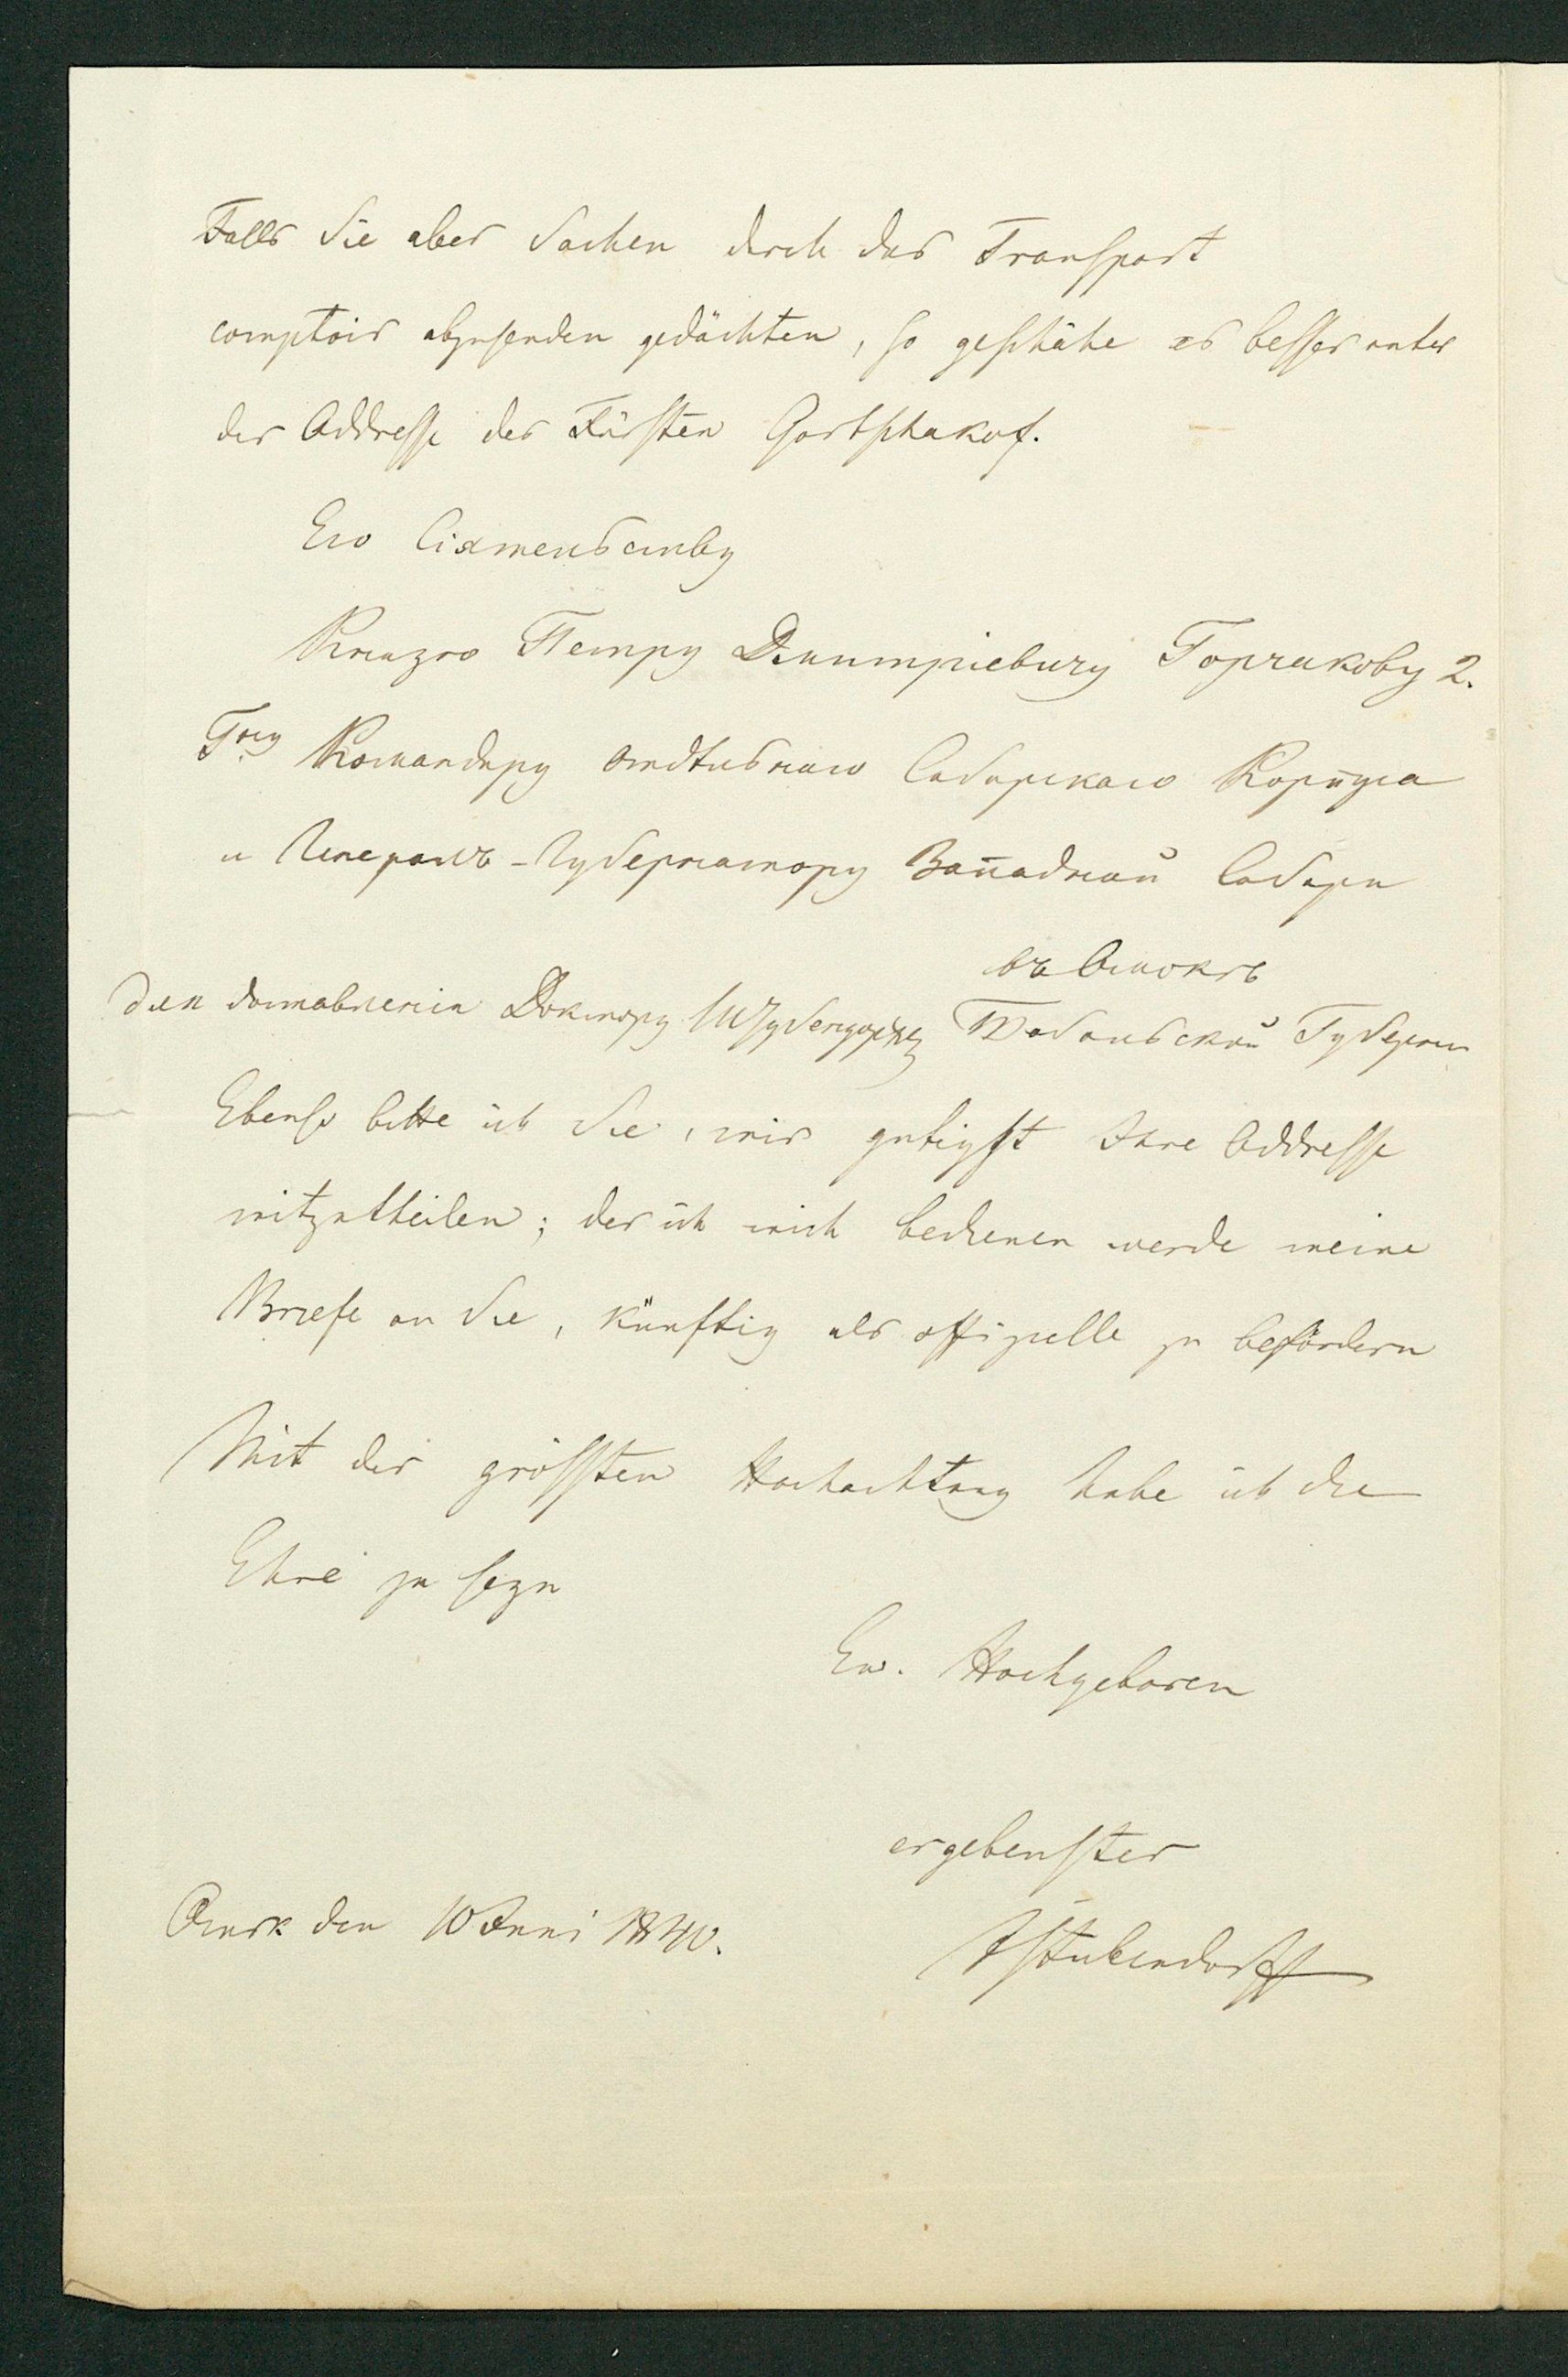 Falls Sie aber Sachen durch das Transport
comptoir abzusenden gedächten, so geschähe es besser unter
der Addresse des Fürsten Gortschakof.
Его Сіятельству
Князю Петру Дмитріевичу Горчакову 2.
Гну Командиру отдѣльнаго Сибирскаго Корпуса
и Генералъ-Губернатору Западной Сибири
въ Омскѣ
для доставленія Доктору Штубендорфу Тобольской Губерніи
Ebenso bitte ich Sie, mir gütigst Ihre Addresse
mitzutheilen; der ich mich bedienen werde meine
Briefe an Sie, künftig als offizielle zu befördern
Mit der grössten Hochachtung habe ich die
Ehre zu seyn
Ew. Hochgeboren
ergebenster
Omsk den 10 Juni 1840.
JStubendorff